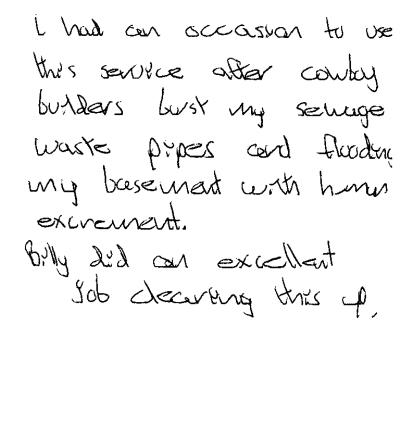 I had an occasion to use
this service after cowboy
builders burst my sewage
waste pipes and flooding
my basement with human
excrement.
Billy did an excellent
job clearing this up.